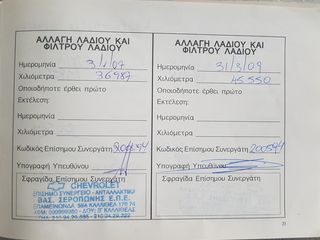 ΑΛΛΑΓΗ ΛΑΔΙΟΥ ΚΑΙ
ΦΙΛΤΡΟΥ ΛΑΔΙΟΥ
Ημερομηνία 3/1/07
Χιλιόμετρα 36987
Οποιοδήποτε έρθει πρώτο
Εκτέλεση:
Ημερομηνία
Χιλιόμετρα
Κωδικός Επίσημου Συνεργάτη
Υπογραφή Υπευθύνου
Σφραγίδα Επίσημου Συνεργάτη
CHEVROLET
ΕΠΙΣΗΜΟ ΣΥΝΕΡΓΕΙΟ - ΑΝΤΑΛΛΑΚΤΙΚΑ
ΒΑΣ. ΣΕΡΟΠΩΝΗΣ Ε.Π.Ε.
ΕΠΑΜΕΙΝΩΝΔΑ ΚΑΛΛΙΘΕΑ 176 74
ΑΛΛΑΓΗ ΛΑΔΙΟΥ ΚΑΙ
ΦΙΛΤΡΟΥ ΛΑΔΙΟΥ
Ημερομηνία 31/3/09
Χιλιόμετρα 45.550
Οποιοδήποτε έρθει πρώτο
Εκτέλεση:
Ημερομηνία
Χιλιόμετρα
Κωδικός Επίσημου Συνεργάτη 200594
Υπογραφή Υπευθύνου
Σφραγίδα Επίσημου Συνεργάτη